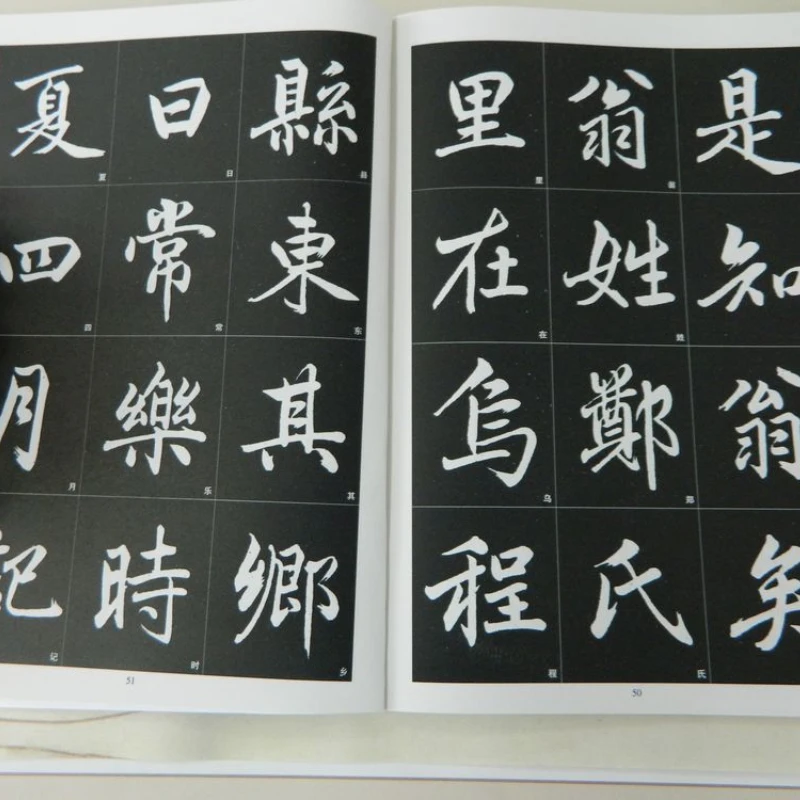 是知翁矣
翁姓鄭氏
翁姓郑氏
里在烏程
里在乌程
50
縣東其鄉
县东其乡
日常樂時
日常乐时
夏四月記
夏四月记
51